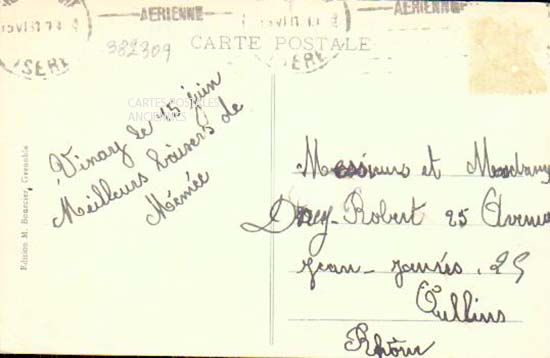 AERIENNE
AERIENNE
ISERE
CARTE POSTALE
382309
CARTES POSTALES
ANCIENNES
Vinay le 15 juin
Meilleurs baisers de
Mémée
Edition M. Bourcier, Grenoble
Messieurs et Madame
Drey-Robert 25 Avenue
Jean-Jaurès. 25
Oullins
Rhône